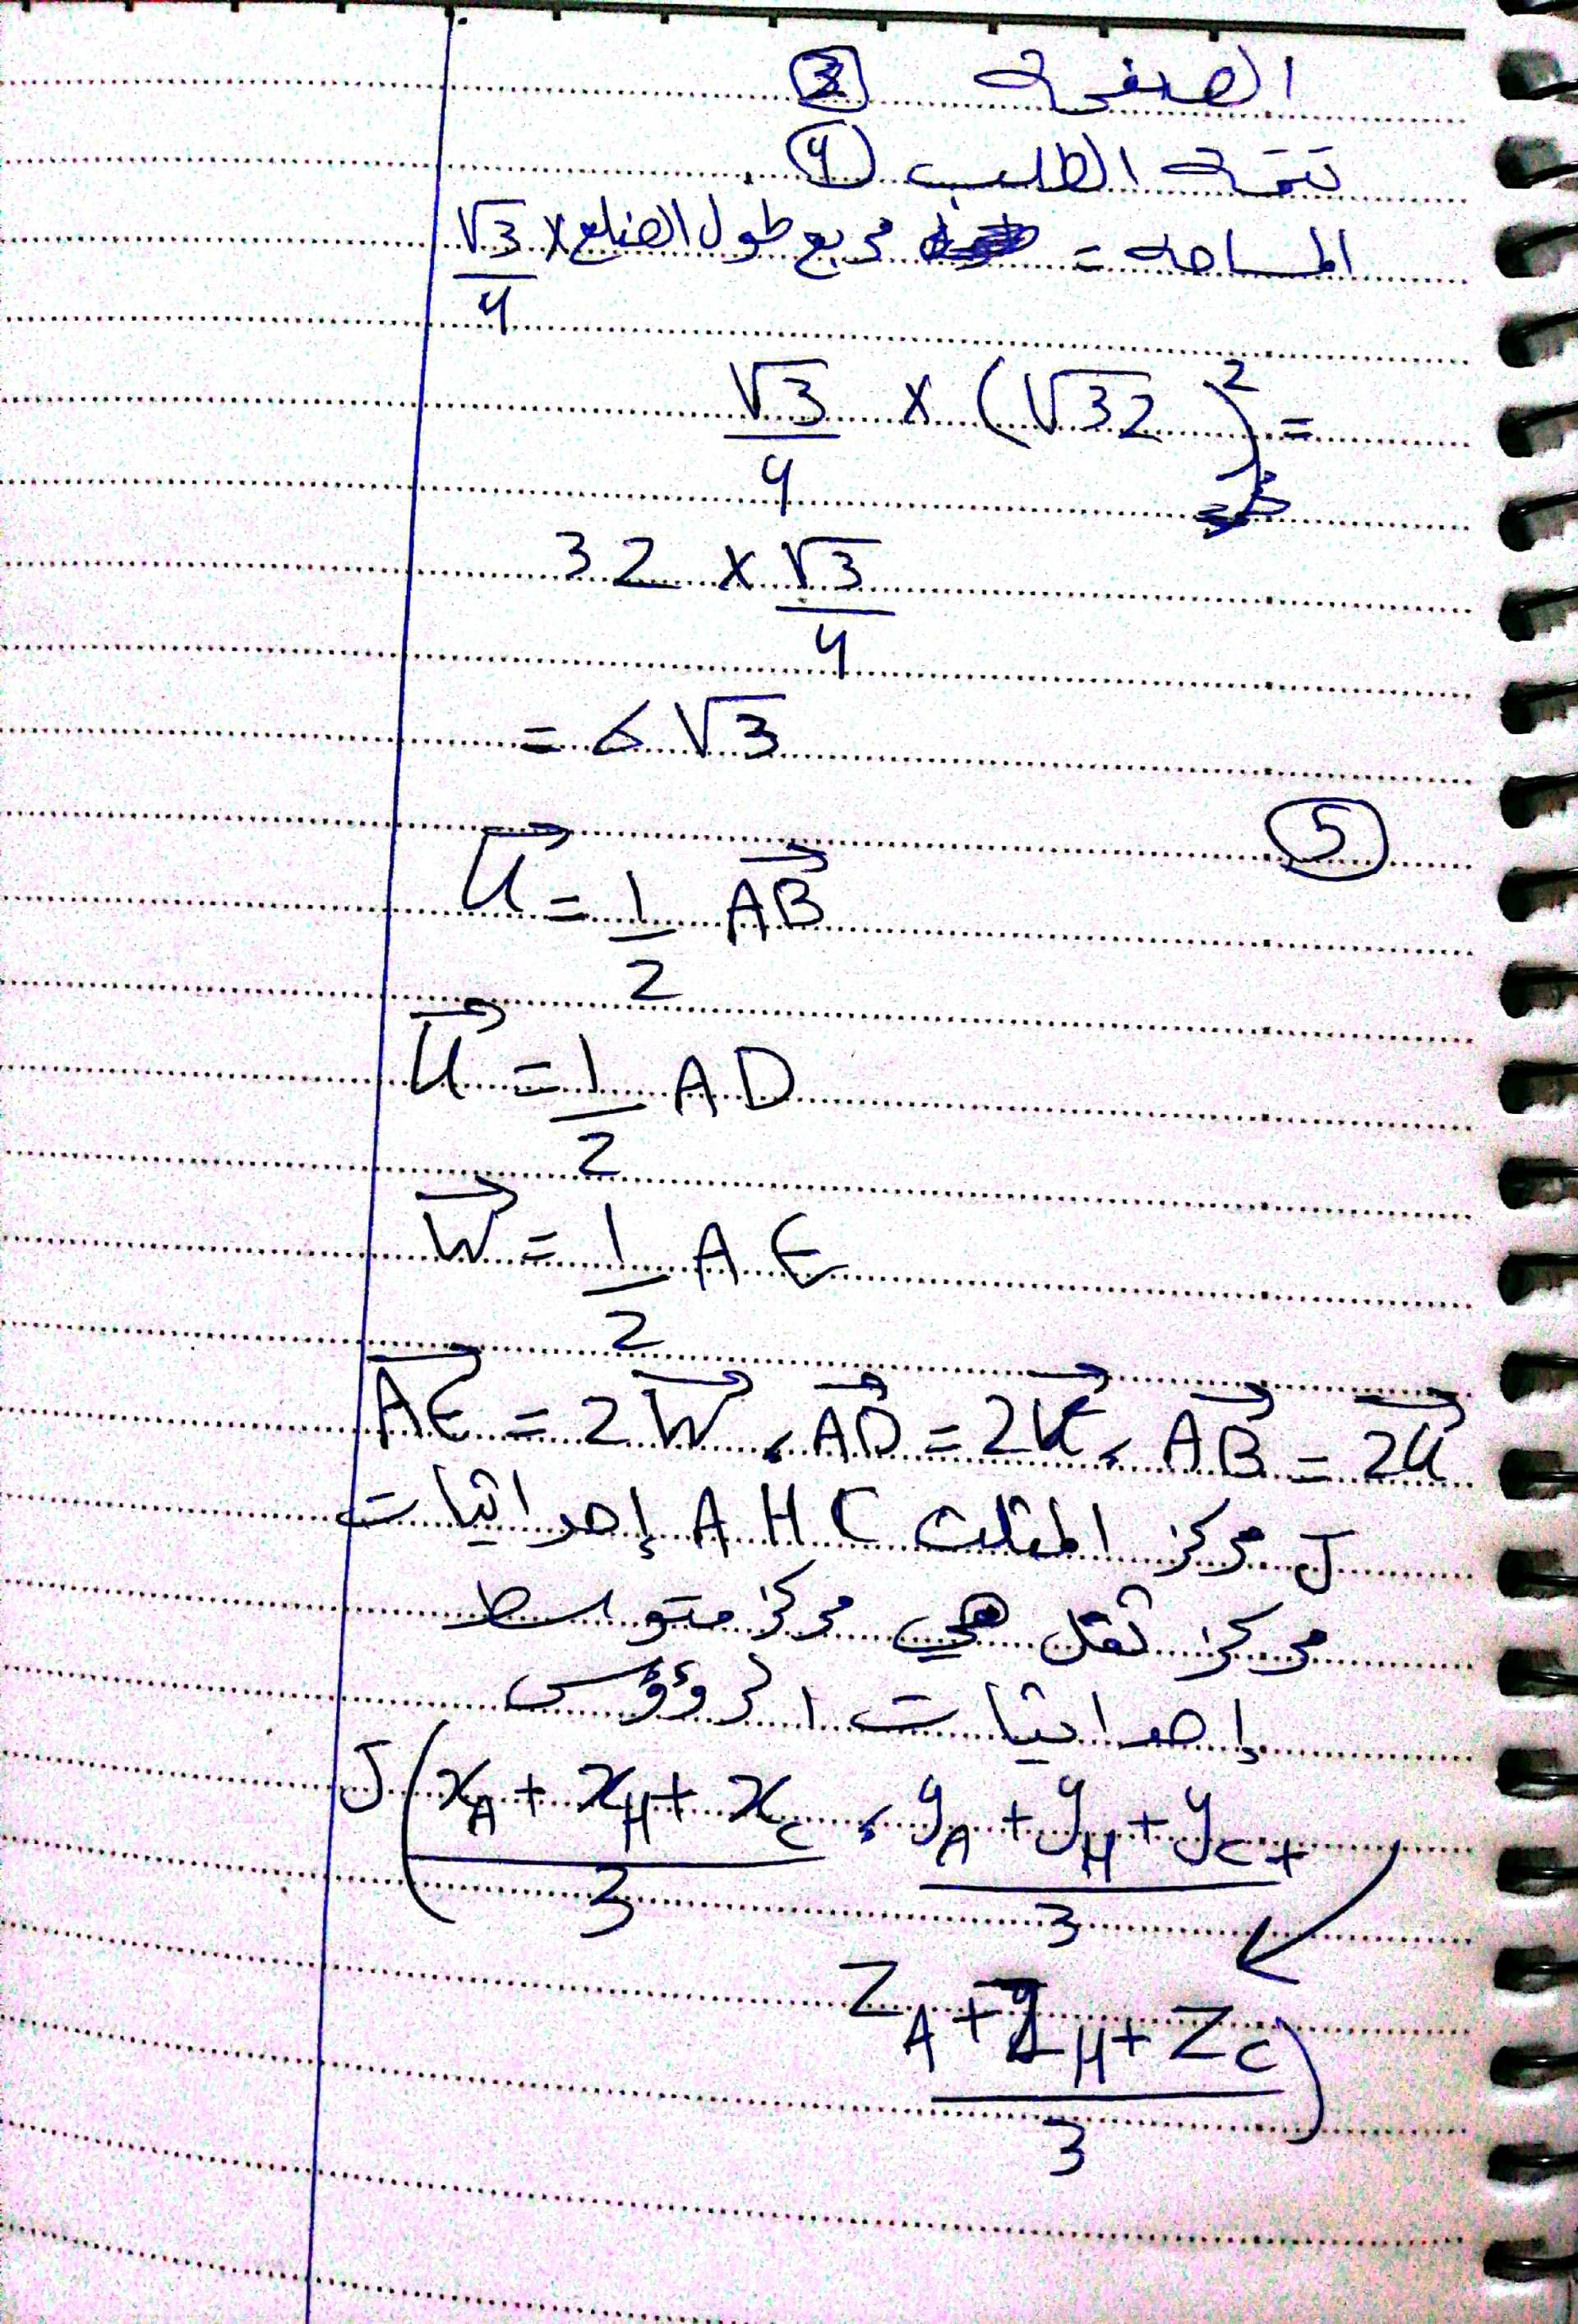 الصفحة 3
تتمة الطلب 4
المساحة = مربع طول الضلع × √3/4
= (√32)² × √3/4
32 × √3/4
= 6√3
5
u⃗ = 1/2 AB⃗
u⃗ = 1/2 AD
w⃗ = 1/2 AE
AB⃗ = 2u⃗ ، AD⃗ = 2u⃗ ، AE⃗ = 2w⃗
J مركز المثلث AHC إحداثيات
مركز ثقل هي مركز متوسط
إحداثيات الرؤوس
J((x_A + x_H + x_C)/3 ، (y_A + y_H + y_C)/3 +
(z_A + z_H + z_C)/3)